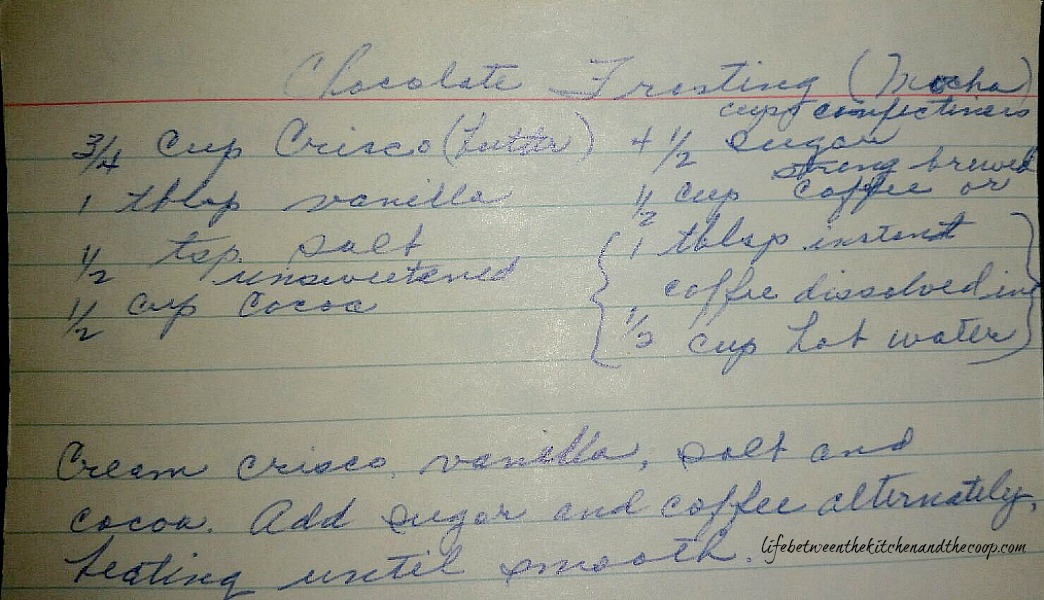 Chocolate Frosting (Mocha)
3/4 cup Crisco (butter)
1 tblsp vanilla
1/2 tsp. salt
unsweetened
1/2 cup cocoa
cups confectiners
4 1/2 sugar
strong brewed
1/2 cup coffee or
1 tblsp instant
coffee dissolved in
1/2 cup hot water
Cream crisco, vanilla, salt and
cocoa. Add sugar and coffee alternately,
beating until smooth.
lifebetweenthekitchenandthecoop.com